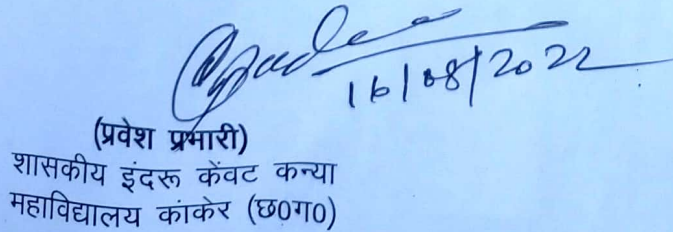 16/08/2022
(प्रवेश प्रभारी)
शासकीय इंदरू केंवट कन्या
महाविद्यालय कांकेर (छ0ग0)